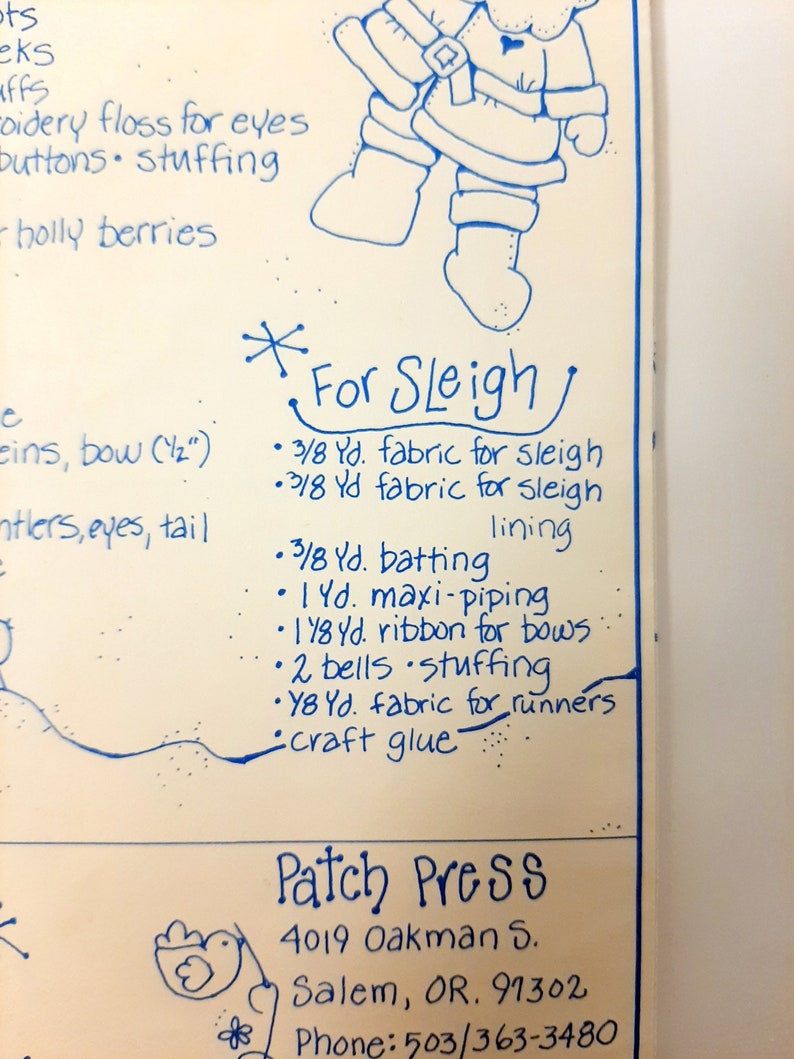 embroidery floss for eyes
buttons • stuffing
holly berries
For Sleigh
bow (1/2")
• 3/8 Yd. fabric for sleigh
• 3/8 Yd fabric for sleigh
lining
antlers, eyes, tail
• 3/8 Yd. batting
• 1 Yd. maxi-piping
• 1 1/8 Yd. ribbon for bows
• 2 bells • stuffing
• 1/8 Yd. fabric for runners
• craft glue
Patch Press
4019 Oakman S.
Salem, OR. 97302
Phone: 503/363-3480